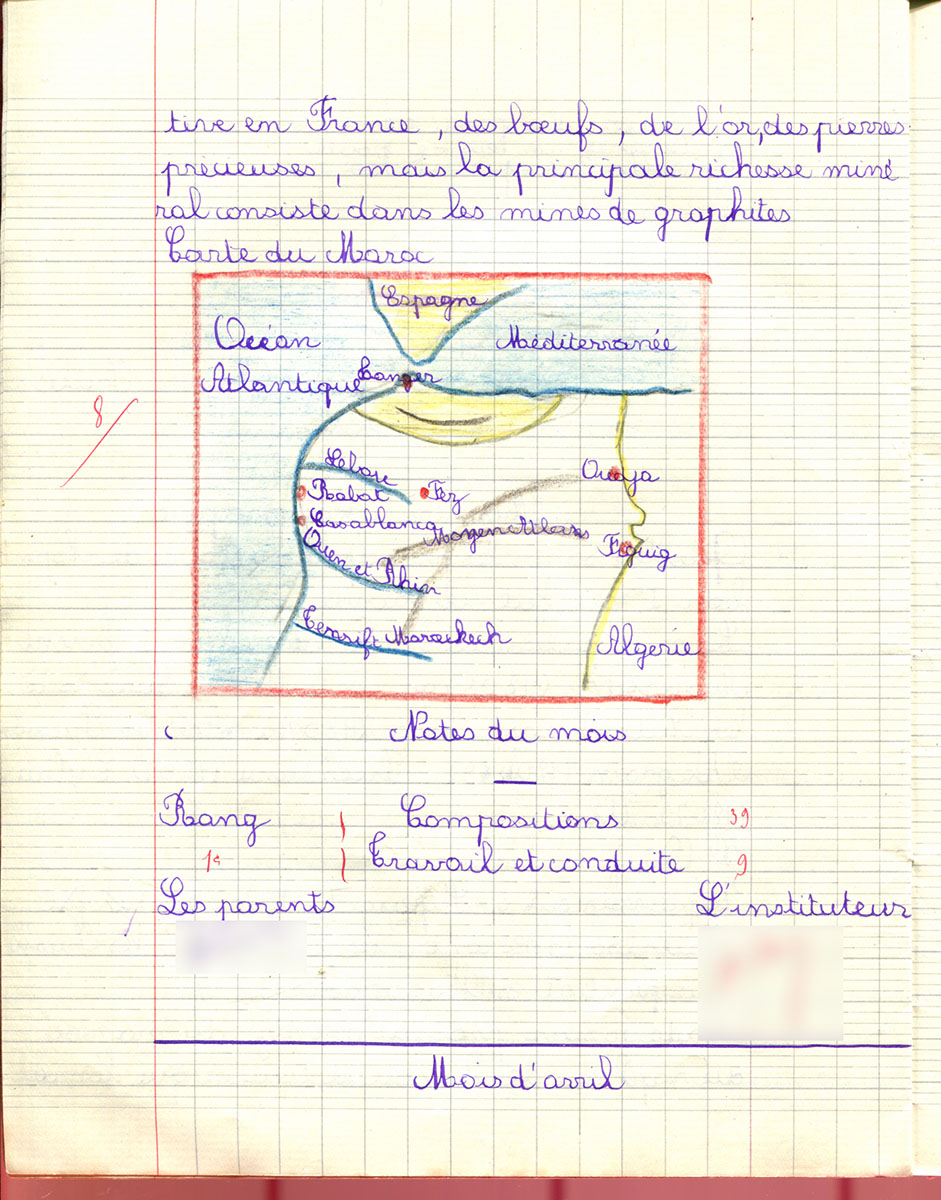 tive en France, des bœufs, de l'or, des pierres
précieuses, mais la principale richesse miné
ral consiste dans les mines de graphites
Carte du Maroc
Espagne
Océan
Méditerranée
Atlantique
Tanger
8
Sebou
Oudja
Rabat
Fez
Casablanca
Moyen Atlas
Figuig
Oum et Rbia
Tensift Marackech
Algerie
Notes du mois
Rang Compositions 39
1e Travail et conduite 9
Les parents L'instituteur
Mois d'avril